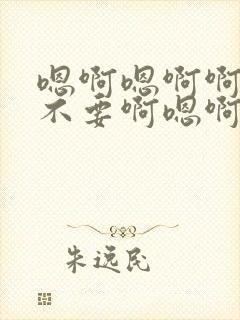 嗯啊嗯啊啊
不要啊嗯啊
朱远民